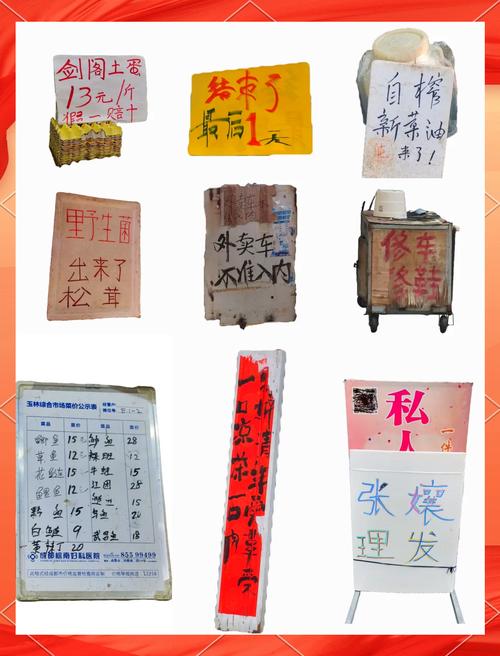 剑阁土蛋
13元/斤
假一赔十
结束了
最后1天
自榨
新菜油
来了!
野生菌
出来了
松茸
外卖车
不准入内
修车
修鞋
玉林综合市场菜价公示表
菜品 单价 菜品 单价
鲫鱼 15 28
草鱼 12 12
花鲢 15 牛蛙 15
鲤鱼 12 江团 28
15
黔鱼 15 20
白鲢 9 武昌鱼 18
黄辣丁 20
成都皖南妇科医院 855 99499
一口凉菜一口肉
私人
一件
张孃
理发